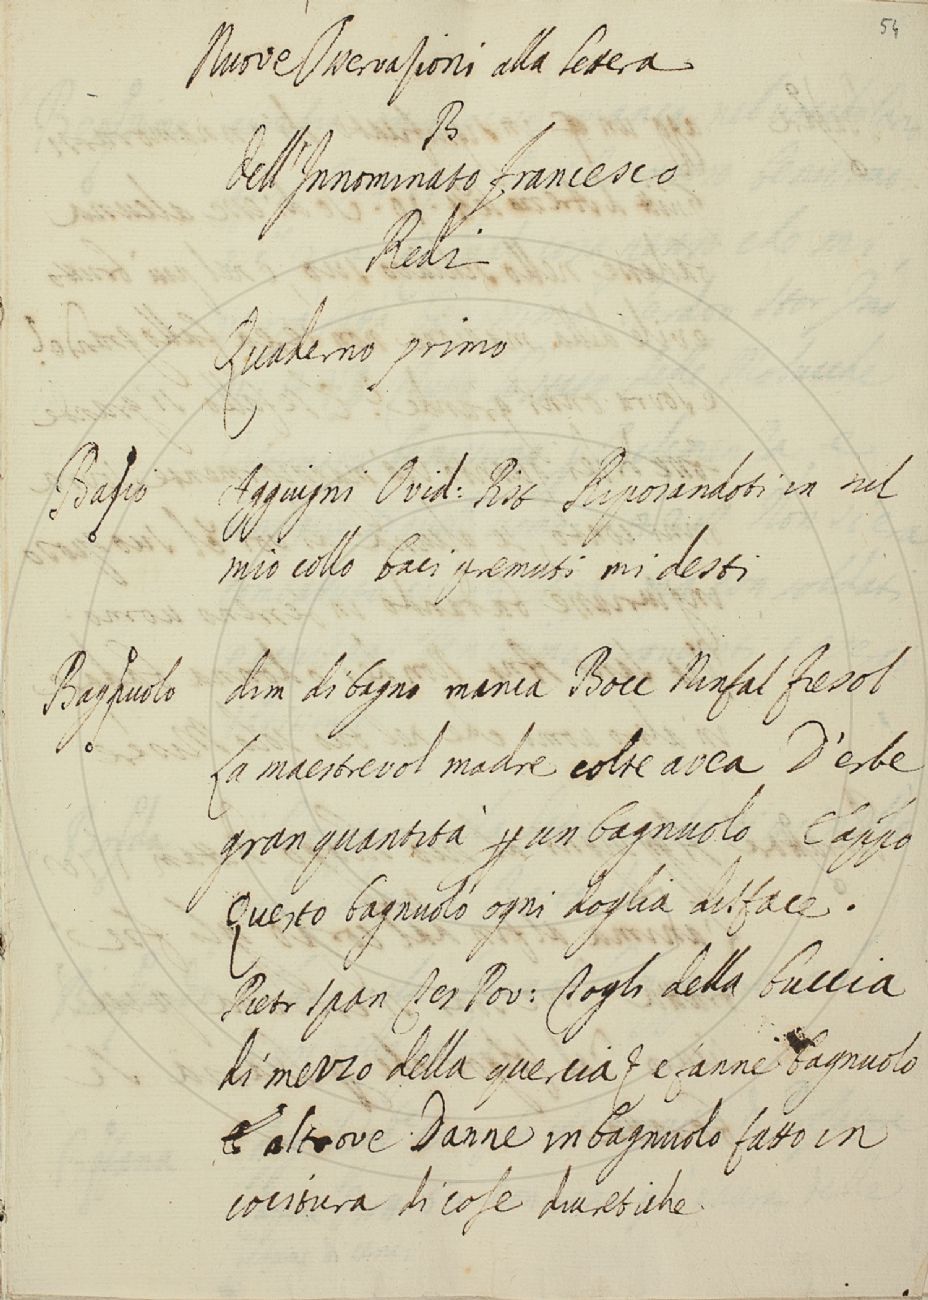 54
Nuove Osservazioni alla lettera
B
dell'Innominato Francesco
Redi
Quaderno primo
Basio Aggiugni Ovid: Pist Riposandoti in sul
mio collo baci premuti mi desti
Bagnuolo dim di bagno manca Bocc Ninfal Fiesol
La maestrevol madre colte avea D'erbe
gran quantità p un bagnuolo Cappo
Questo bagnuolo ogni doglia disface.
Pietr Span Tes Pov: Togli della buccia
di mezzo della quercia e fanne bagnuolo
E altrove Danne in bagnuolo fatto in
cocitura di cose diuretiche